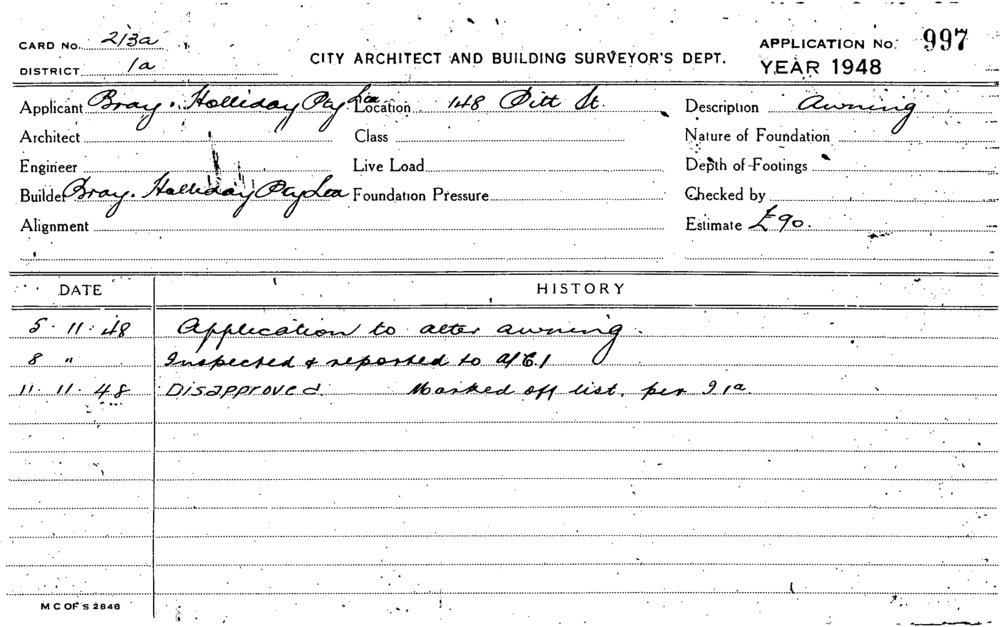 CARD No. 213a
DISTRICT 1a
CITY ARCHITECT AND BUILDING SURVEYOR'S DEPT.
APPLICATION No. 997
YEAR 1948
Applicant Bray. Holliday Pty Ltd Location 148 Pitt St. Description Awning
Architect Class Nature of Foundation
Engineer Live Load Depth of Footings
Builder Bray. Holliday Pty Ltd Foundation Pressure Checked by
Alignment Estimate £90.
DATE HISTORY
5. 11. 48 Application to alter awning.
8 " Inspected & reported to
11. 11. 48 Disapproved. Marked off list. per 
M C OF S 2846